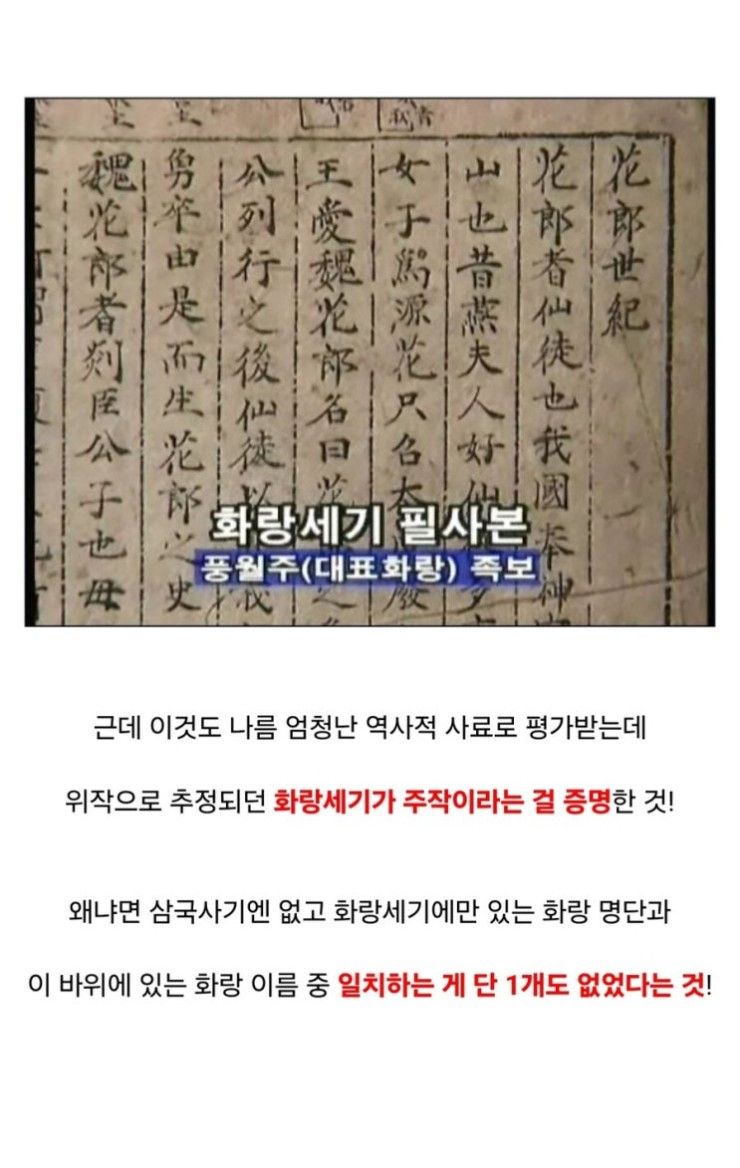 花郎世紀
花郎者仙徒也我國奉神
山也昔燕夫人好仙
女子爲源花只召太
王愛魏花郎名曰花
公列行之後仙徒以
勇卒由是而生花郎之史
魏花郎者剡臣公子也母
화랑세기 필사본
풍월주(대표화랑) 족보
근데 이것도 나름 엄청난 역사적 사료로 평가받는데
위작으로 추정되던 화랑세기가 주작이라는 걸 증명한 것!
왜냐면 삼국사기엔 없고 화랑세기에만 있는 화랑 명단과
이 바위에 있는 화랑 이름 중 일치하는 게 단 1개도 없었다는 것!